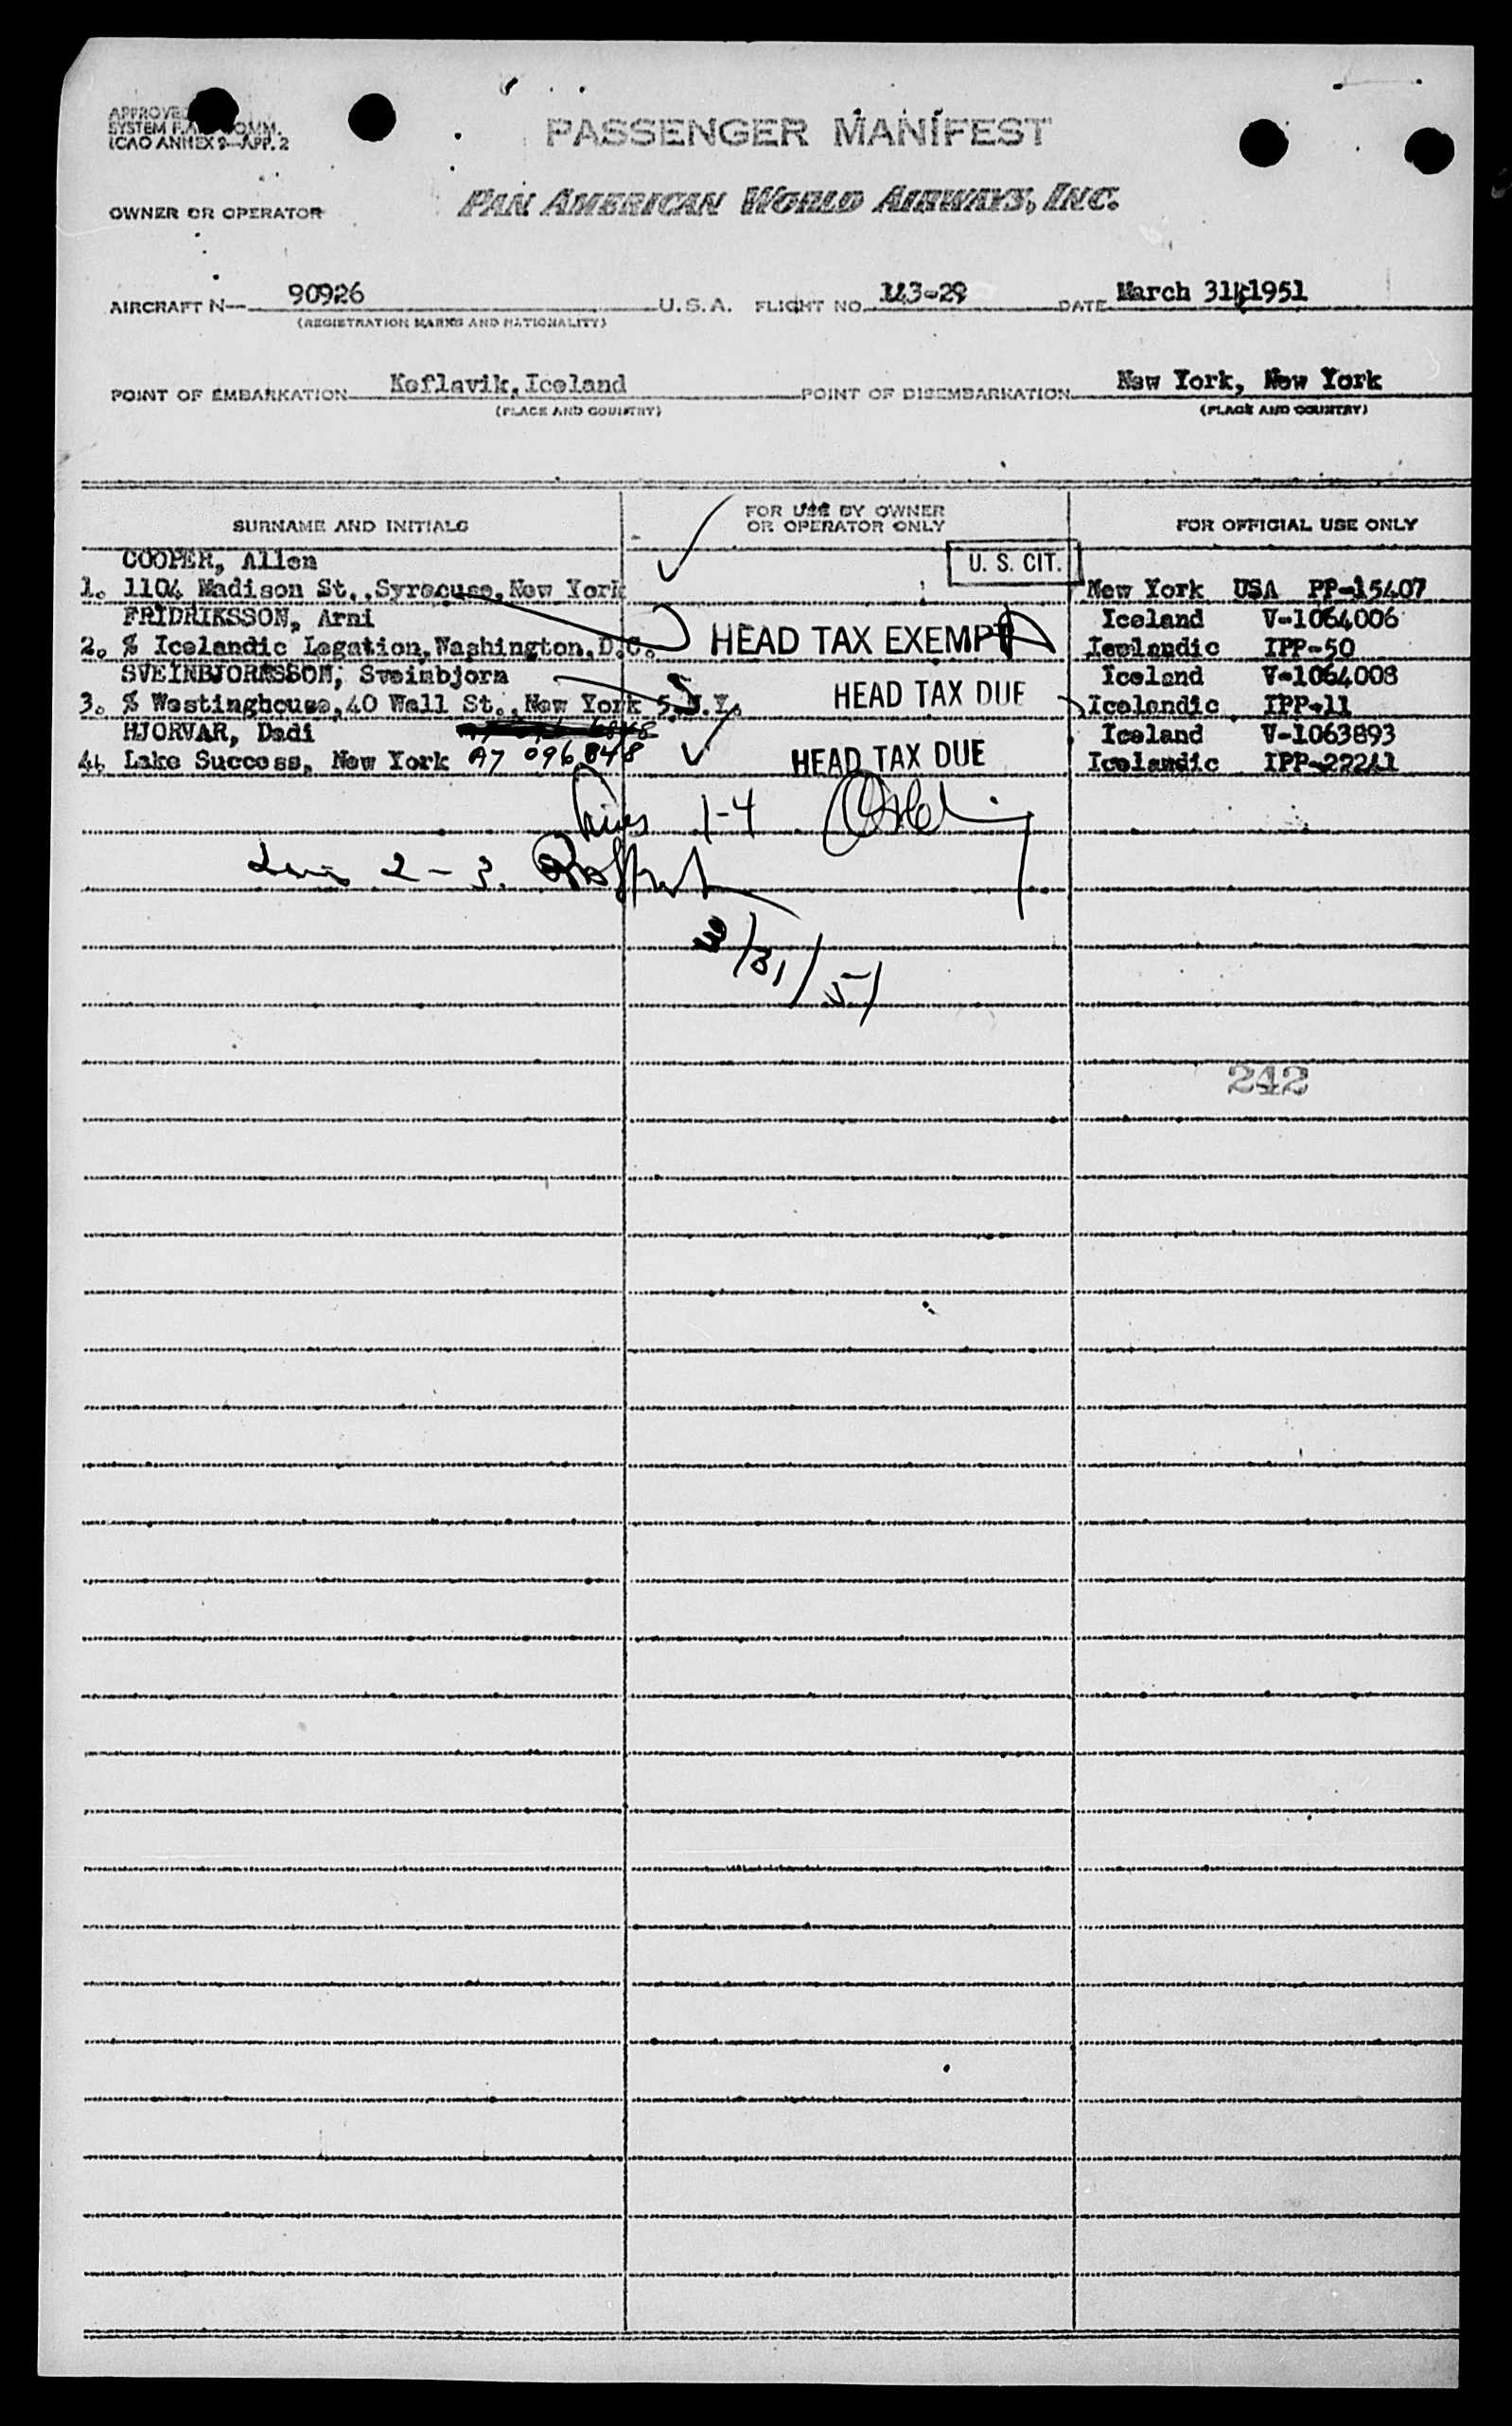 APPROVED
SYSTEM F.A.L. COMM.
ICAO ANNEX 9—APP. 2
PASSENGER MANIFEST
OWNER OR OPERATOR PAN AMERICAN WORLD AIRWAYS, INC.
AIRCRAFT N— 90926 U.S.A. FLIGHT NO. 143-29 DATE March 31, 1951
(REGISTRATION MARKS AND NATIONALITY)
POINT OF EMBARKATION Keflavik, Iceland POINT OF DISEMBARKATION New York, New York
(PLACE AND COUNTRY) (PLACE AND COUNTRY)
SURNAME AND INITIALS FOR USE BY OWNER OR OPERATOR ONLY FOR OFFICIAL USE ONLY
COOPER, Allen U. S. CIT.
1. 1104 Madison St., Syracuse, New York New York USA PP-15407
FRIDRIKSSON, Arni HEAD TAX EXEMPT Iceland V-1064006
2. % Icelandic Legation, Washington, D.C. Icelandic IPP-50
SVEINBJORNSSON, Sveinbjorn HEAD TAX DUE Iceland V-1064008
3. % Westinghouse, 40 Wall St., New York 5, N.Y. Icelandic IPP-11
HJORVAR, Dadi Iceland V-1063893
4. Lake Success, New York A7 096 848 HEAD TAX DUE Icelandic IPP-22241
Lines 1-4
Lines 2-3.
3/31/51
242